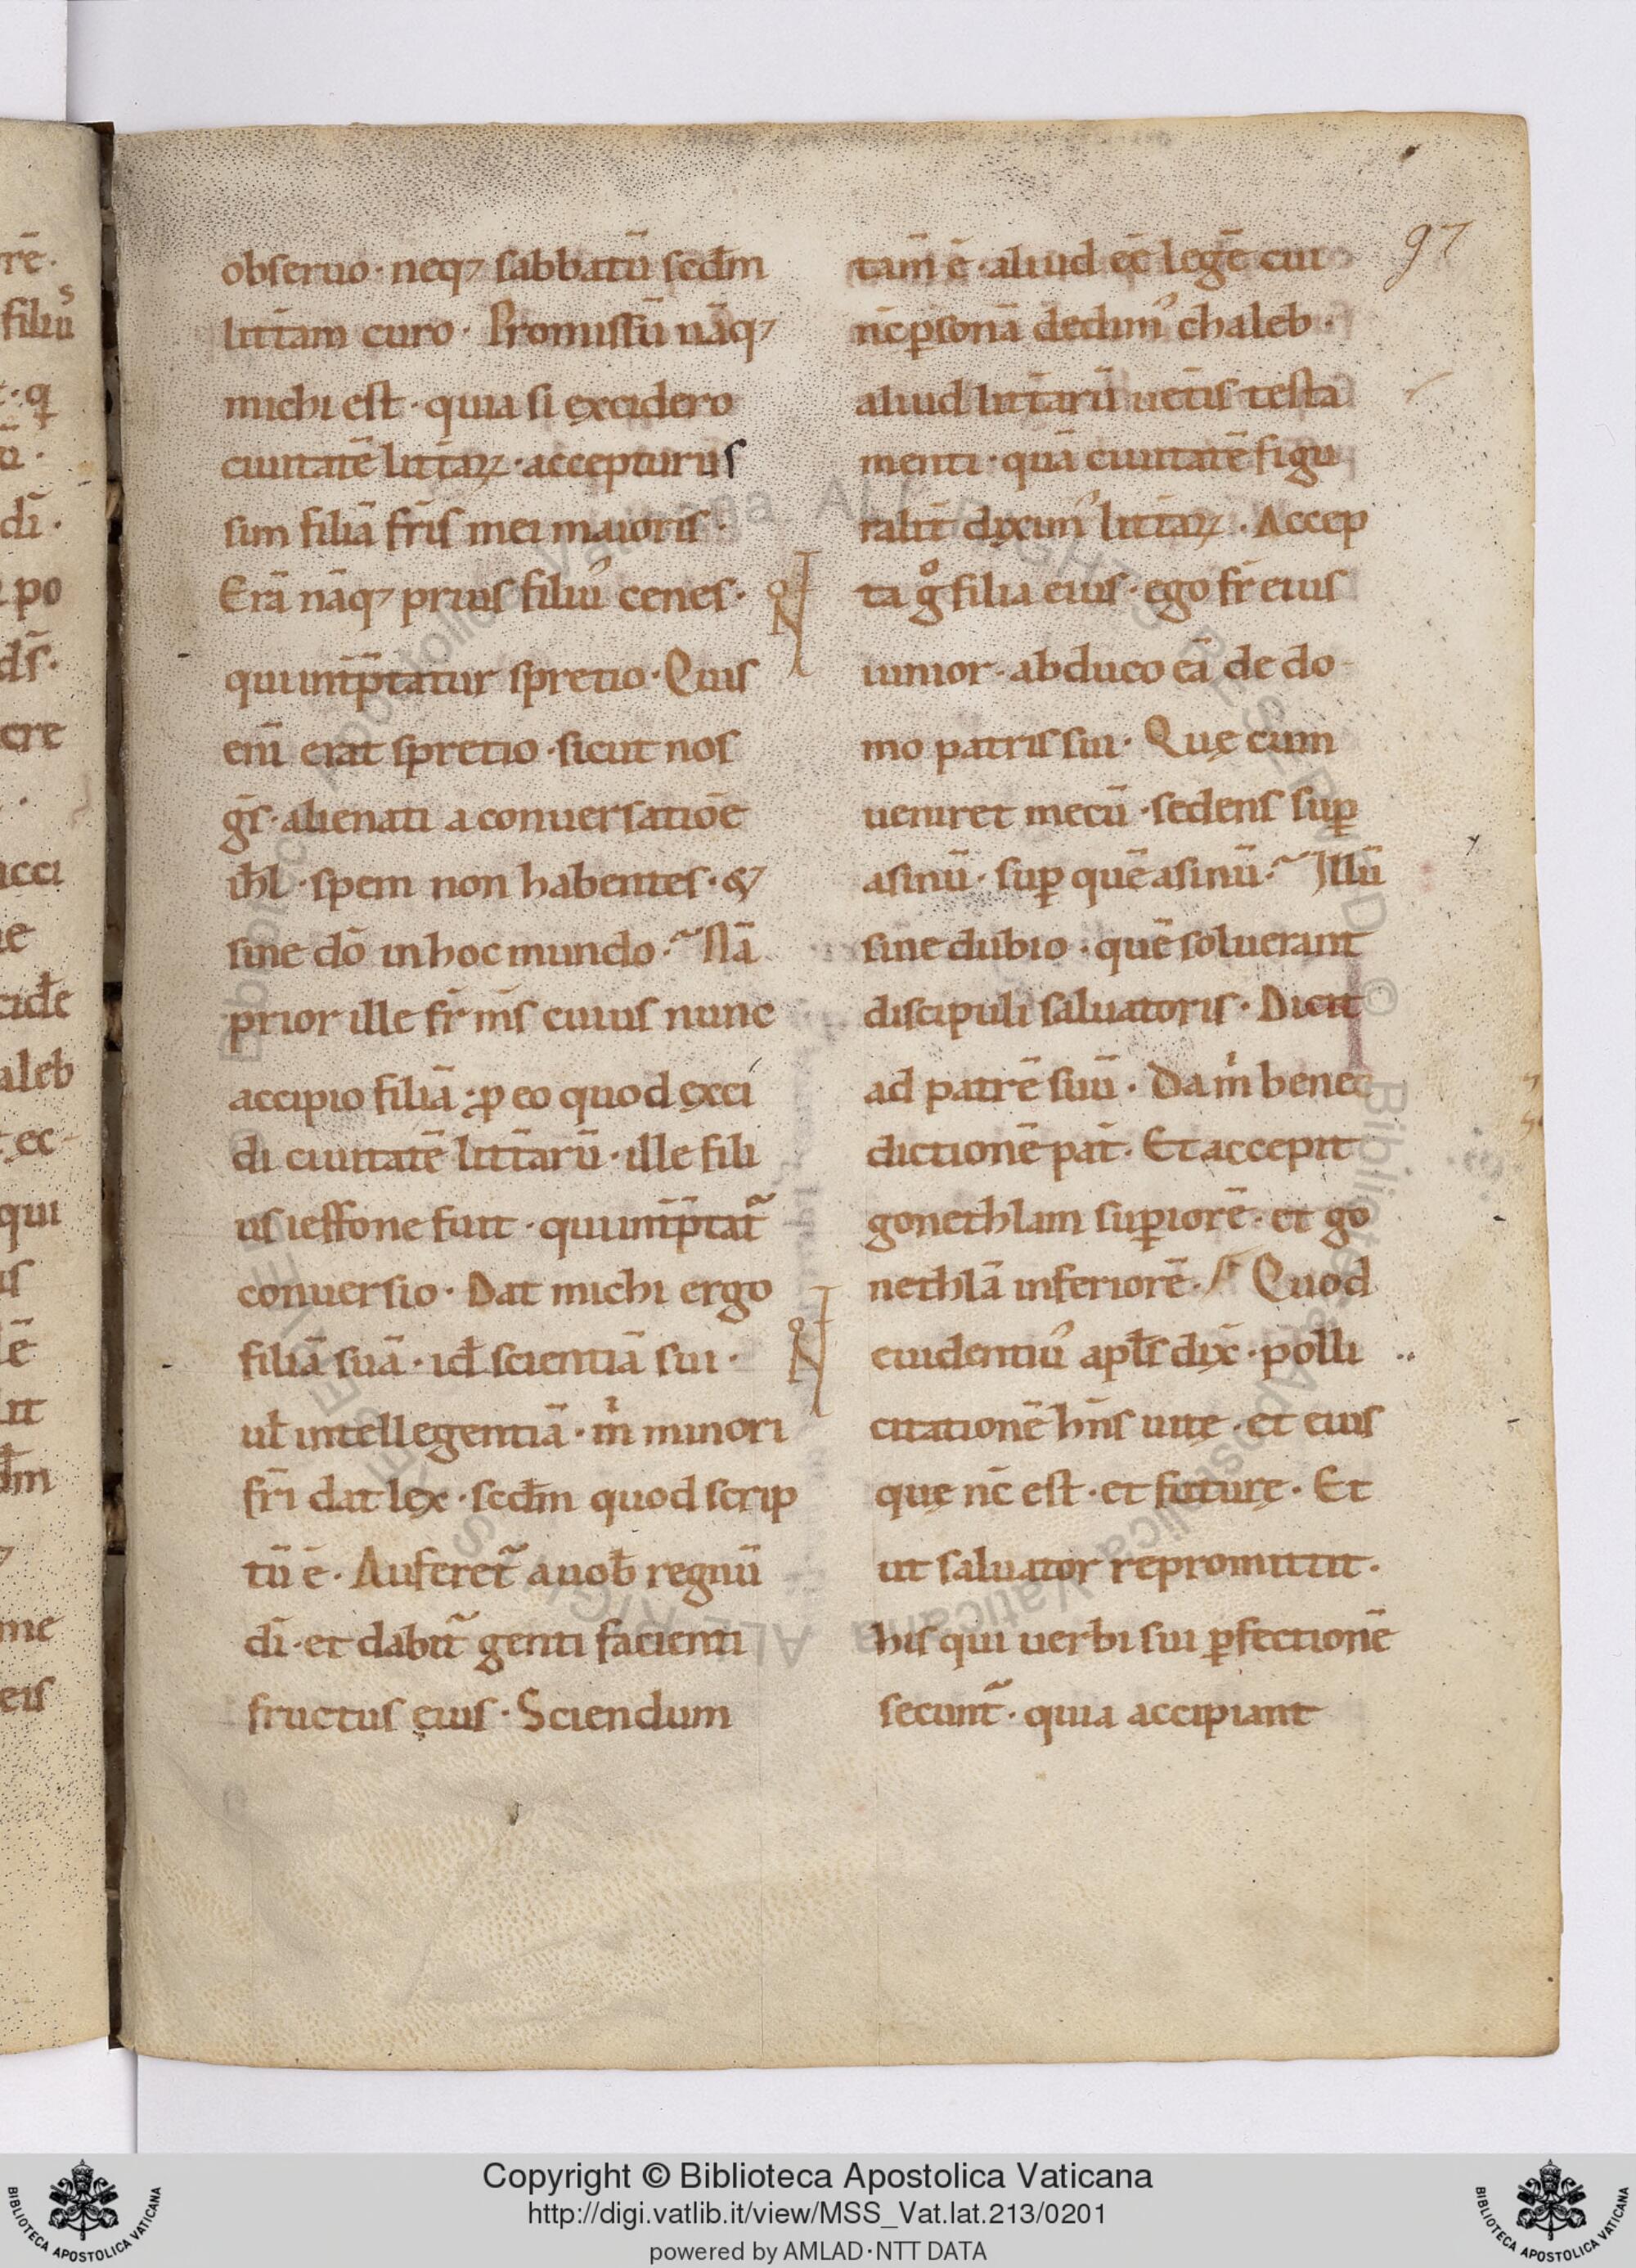 97
obseruo · neq; sabbatū scdm̄
litt̄am curo · Promissū nāq;
michi est · quia si excidero
ciuitatē litt̄aꝝ · accepturus
sim filiā fr̄is mei maioris ·
Erā nāq; prius filiu᾽ cenes ·
qui int̄p̄tatur spretio · Quis
eni̅ erat spretio · sicut nos
gs̄ · alienati a conuersatiōe
ihl̄ · spem non habentes · &
sine dō in hoc mundo · Nā
prior ille fr̄ m̄s cuius nunc
accipio filiā · ꝓ eo quod exci
di ciuitatē litt̄arū · ille fili
us ieffone fuit · qui int̄p̄tat᷑
conuersio · Dat michi ergo
filiā suā · id̄ scientiā sui ·
ul̄ intellegentiā · m̍ minori
fr̄i dat lex · scdm̄ quod scrip
tū ē · Auferet᷑ a uob̄ regnū
dī · et dabit᷑ genti facienti
fructus ęius · Sciendum
tam̄ ē · aliud eē̄ legē cui
nc̄ ꝑsonā dedim᾽ chaleb ·
aliud litt̄arū uet̄is testa
menti · quā ciuitatē figu
ralit̄ dixim᾽ litt̄aꝝ · Accep
ta gͦ filia eius · ego fr̄ eius
iunior · abduco eā de do
mo patris sui · Quę cum
ueniret mecū · sedens suꝑ
asinū · suꝑ quē asinū · Illū
sine dubio · quē soluerant
discipuli saluatoris · Dicit
ad patrē suū · Da m̍ bene
dictionē pat̄ · Et accepit
gonethlam suꝑiorē · et go
nethlā inferiorē · Quod
euidentiu᾽ apl̄s dix̄ · polli
citationē hn̄s uitę · et eius
quę nc̄ est · et futurę · Et
ut saluator repromittit ·
his qui uerbi sui ꝑfectionē
secunt᷑ · quia accipiant
Copyright © Biblioteca Apostolica Vaticana
http://digi.vatlib.it/view/MSS_Vat.lat.213/0201
powered by AMLAD·NTT DATA